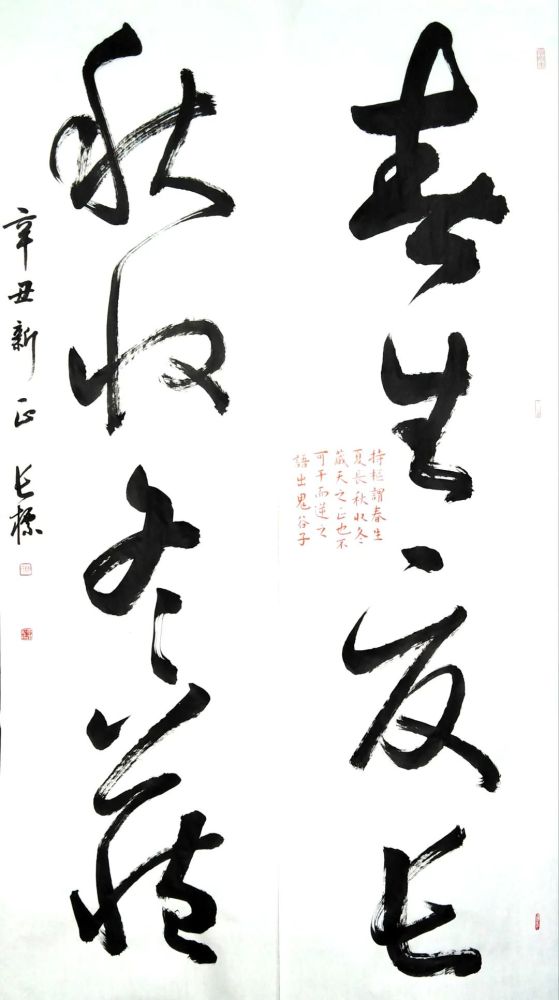 春生夏长
秋收冬藏
持枢谓春生
夏长秋收冬
藏天之正也不
可干而逆之
語出鬼谷子
辛丑新正 长標